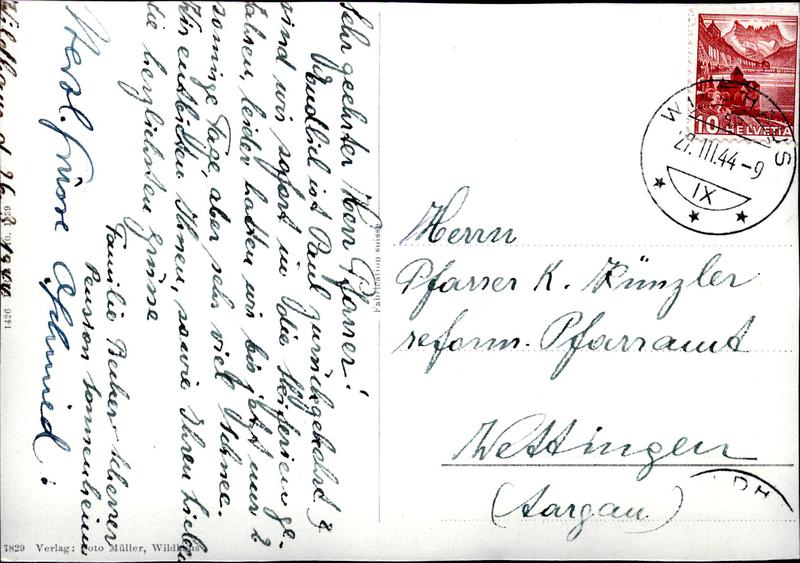 Wildhaus d. 26.3.1944.
Sehr geehrter Herr Pfarrer!
Endlich ist Paul zurückgekehrt &
sind wir sofort in die Skiferien ge-
fahren, leider hatten wir bis jetzt nur 2
sonnige Tage, aber sehr viel Schnee.
Wir entbieten Ihnen, sowie Ihren Lieben
die herzlichsten Grüsse
Familie Becher Scherrer
Pension Sonnenheim
Herzl. Grüsse
Schmied:
Fabrication suisse
7829 Verlag: Foto Müller, Wildhaus
1426
No. 1239
HELVETIA
10
WILDHAUS
27.III.44-9
IX
Herrn
Pfarrer K. Künzler
reform. Pfarramt
Wettingen
(Aargau)
LDH